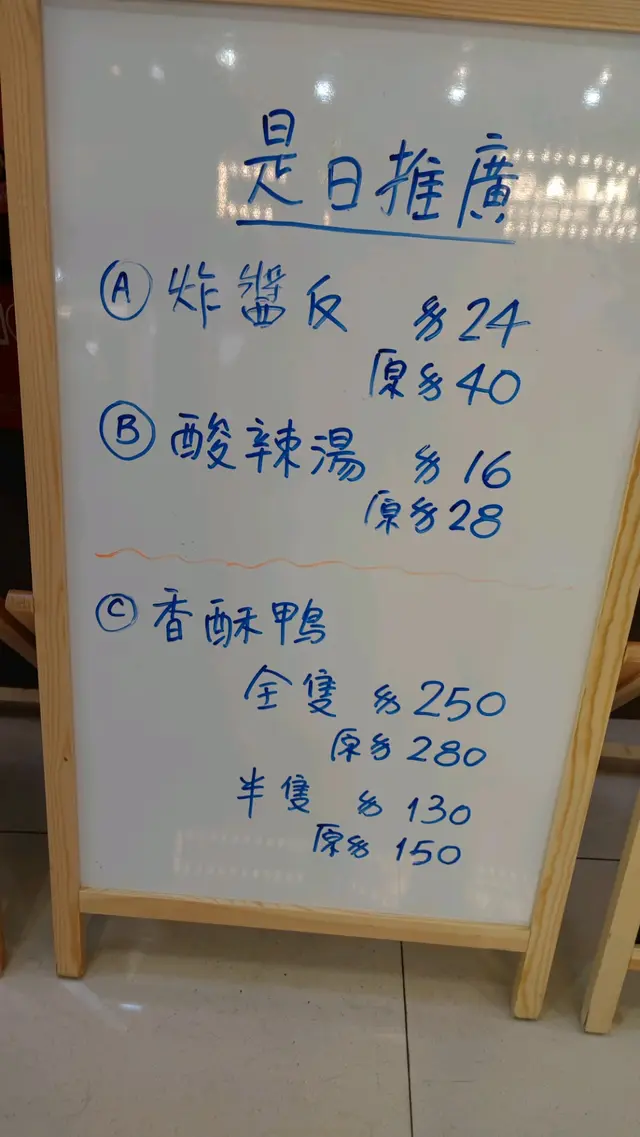 是日推廣
Ⓐ 炸醬反 $24
原$40
Ⓑ 酸辣湯 $16
原$28
Ⓒ 香酥鴨
全隻 $250
原$280
半隻 $130
原$150